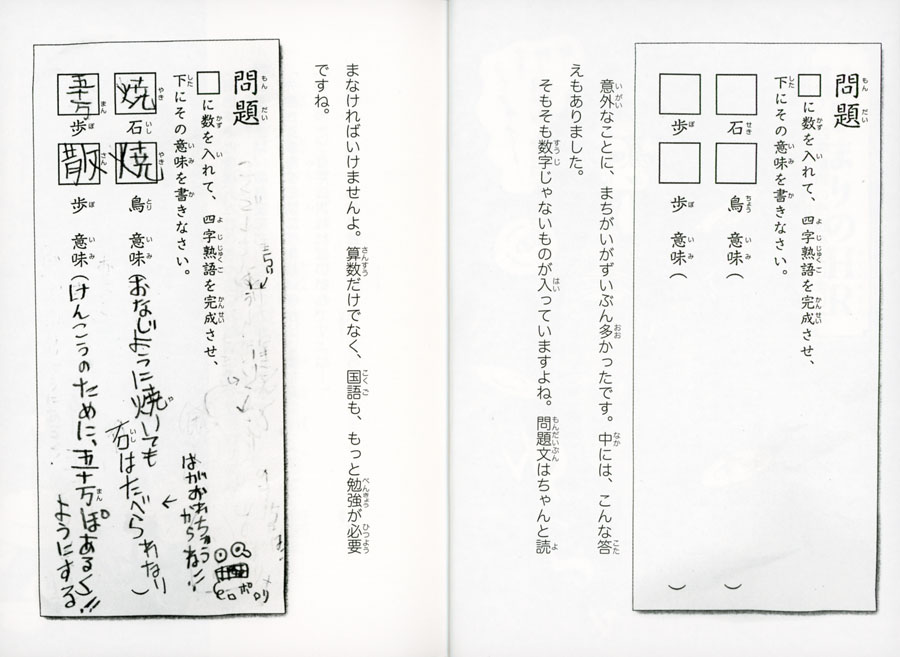 問題
□に数を入れて、四字熟語を完成させ、
下にその意味を書きなさい。
□石□鳥 意味( )
□歩□歩 意味( )
意外なことに、まちがいがずいぶん多かったです。中には、こんな答
えもありました。
そもそも数字じゃないものが入っていますよね。問題文はちゃんと読
まなければいけませんよ。算数だけでなく、国語も、もっと勉強が必要
ですね。
問題
□に数を入れて、四字熟語を完成させ、
下にその意味を書きなさい。
焼石焼鳥 意味(おなじように焼いても
石はたべられない)
からね!!
ポロリ
五十万歩散歩 意味(けんこうのために、五十万ぽあるく!!
ようにする